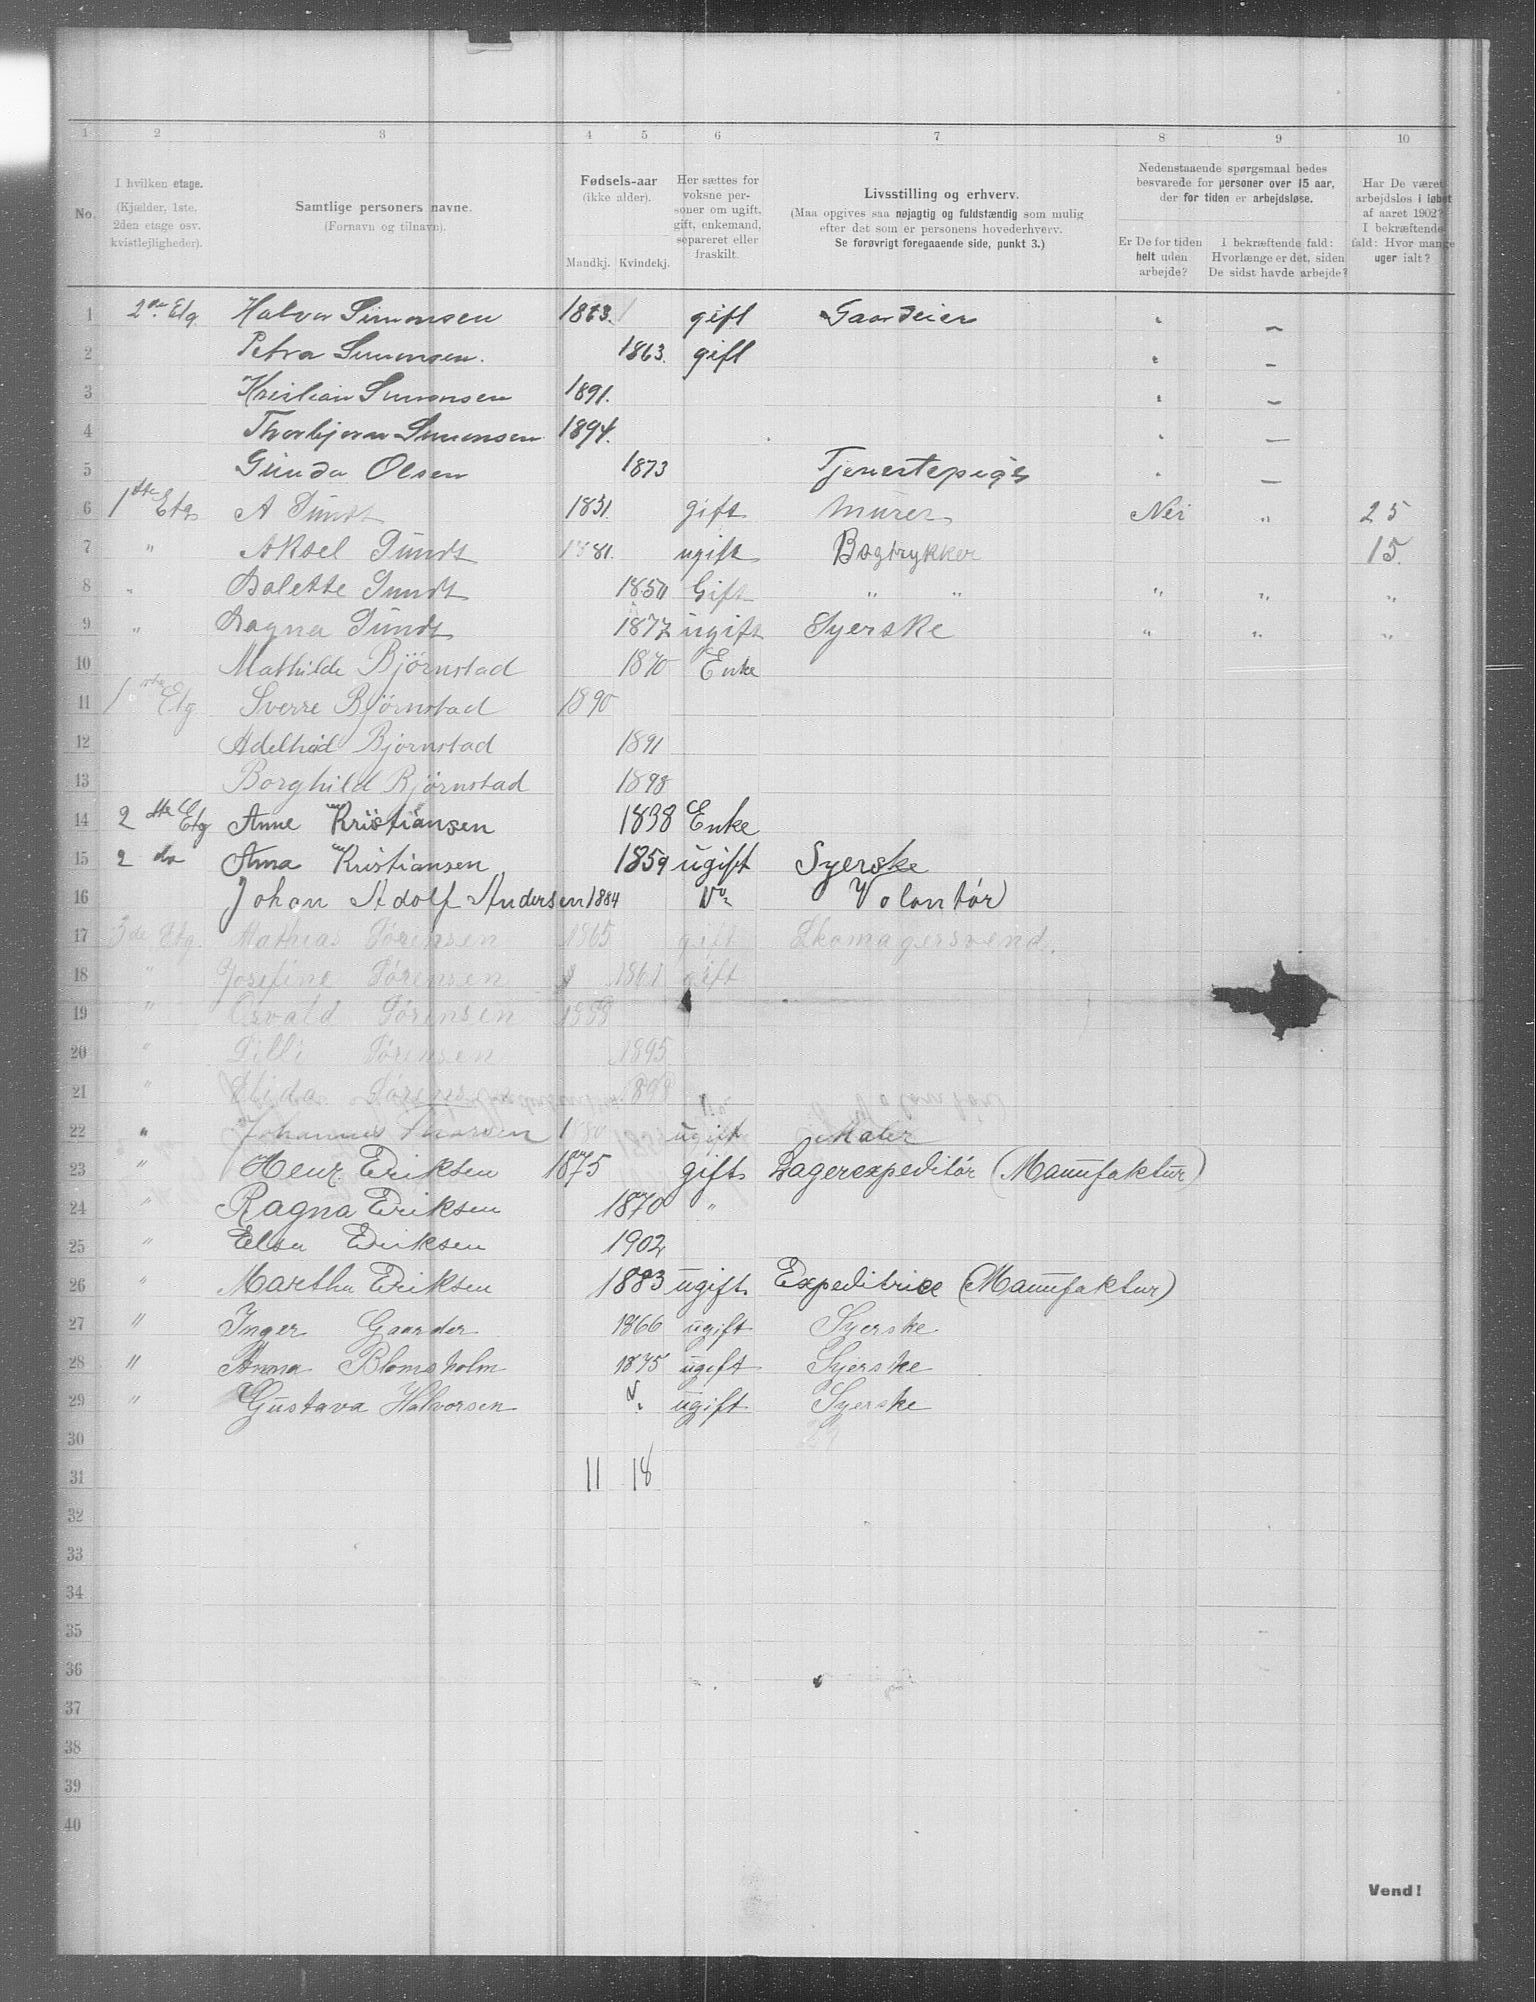 1 2 3 4 5 6 7 8 9 10
No.
I hvilken etage.
(Kjælder, 1ste,
2den etage osv.
kvistlejligheder).
Samtlige personers navne.
(Fornavn og tilnavn).
Fødsels-aar
(ikke alder).
Mandkj. Kvindekj.
Her sættes for
voksne per-
soner om ugift,
gift, enkemand,
separeret eller
fraskilt.
Livsstilling og erhverv.
(Maa opgives saa nøjagtig og fuldstændig som mulig
efter det som er personens hovederhverv.
Se forøvrigt foregaaende side, punkt 3.)
Nedenstaaende spørgsmaal bedes
besvarede for personer over 15 aar,
der for tiden er arbejdsløse.
Er De for tiden
helt uden
arbejde?
I bekræftende fald:
Hvorlænge er det, siden
De sidst havde arbejde?
Har De været
arbejdsløs i løbet
af aaret 1902?
I bekræftende
fald: Hvor mange
uger ialt?
1 2den Etg. Halvor Simonsen 1863. gift Gaardeier " –
2 Petra Simonsen. 1863. gift " –
3 Kristian Simonsen 1891. " –
4 Thorbjørn Simonsen 1894. " –
5 Gunda Olsen 1873 Tjenestepige " –
6 1ste Etg A Sundt 1851 gift Murer Nei " 25
7 " Aksel Sundt 1881. ugift Bogtrykker 15.
8 " Dolette Sundt 1850 Gift " " " " "
9 " Dagna Sundt 1877 ugift Syerske " " "
10 Mathilde Bjørnstad 1870 Enke
11 1ste Etg Sverre Bjørnstad 1890
12 Adelheid Bjørnstad 1891
13 Borghild Bjørnstad 1898
14 2 den Etg Anne Kristiansen 1838 Enke
15 2 do Anna Kristiansen 1859 ugift Syerske
16 Johan Adolf Andersen 1884 Do Volontør
17 3de Etg. Mathias Sørensen 1865 gift Skomagersvend.
18 " Josefine Sørensen 1861 gift
19 " Osvald Sørensen 1888
20 " Lilli Sørensen 1895
21 " Elida Sørensen 1898
22 " Johannes Thorsen 1880 ugift Maler
23 " Henr. Eriksen 1875 gift Lagerexpeditør (Manufaktur)
24 " Ragna Eriksen 1870 "
25 " Elsa Eriksen 1902
26 " Martha Eriksen 1883 ugift Expeditrice (Manufaktur)
27 " Inger Gaarder 1866 ugift Syerske
28 " Anna Blomsholm 1875 ugift Syerske
29 " Gustava Halvorsen ugift Syerske
30
31 11 18
32
33
34
35
36
37
38
39
40
Vend!